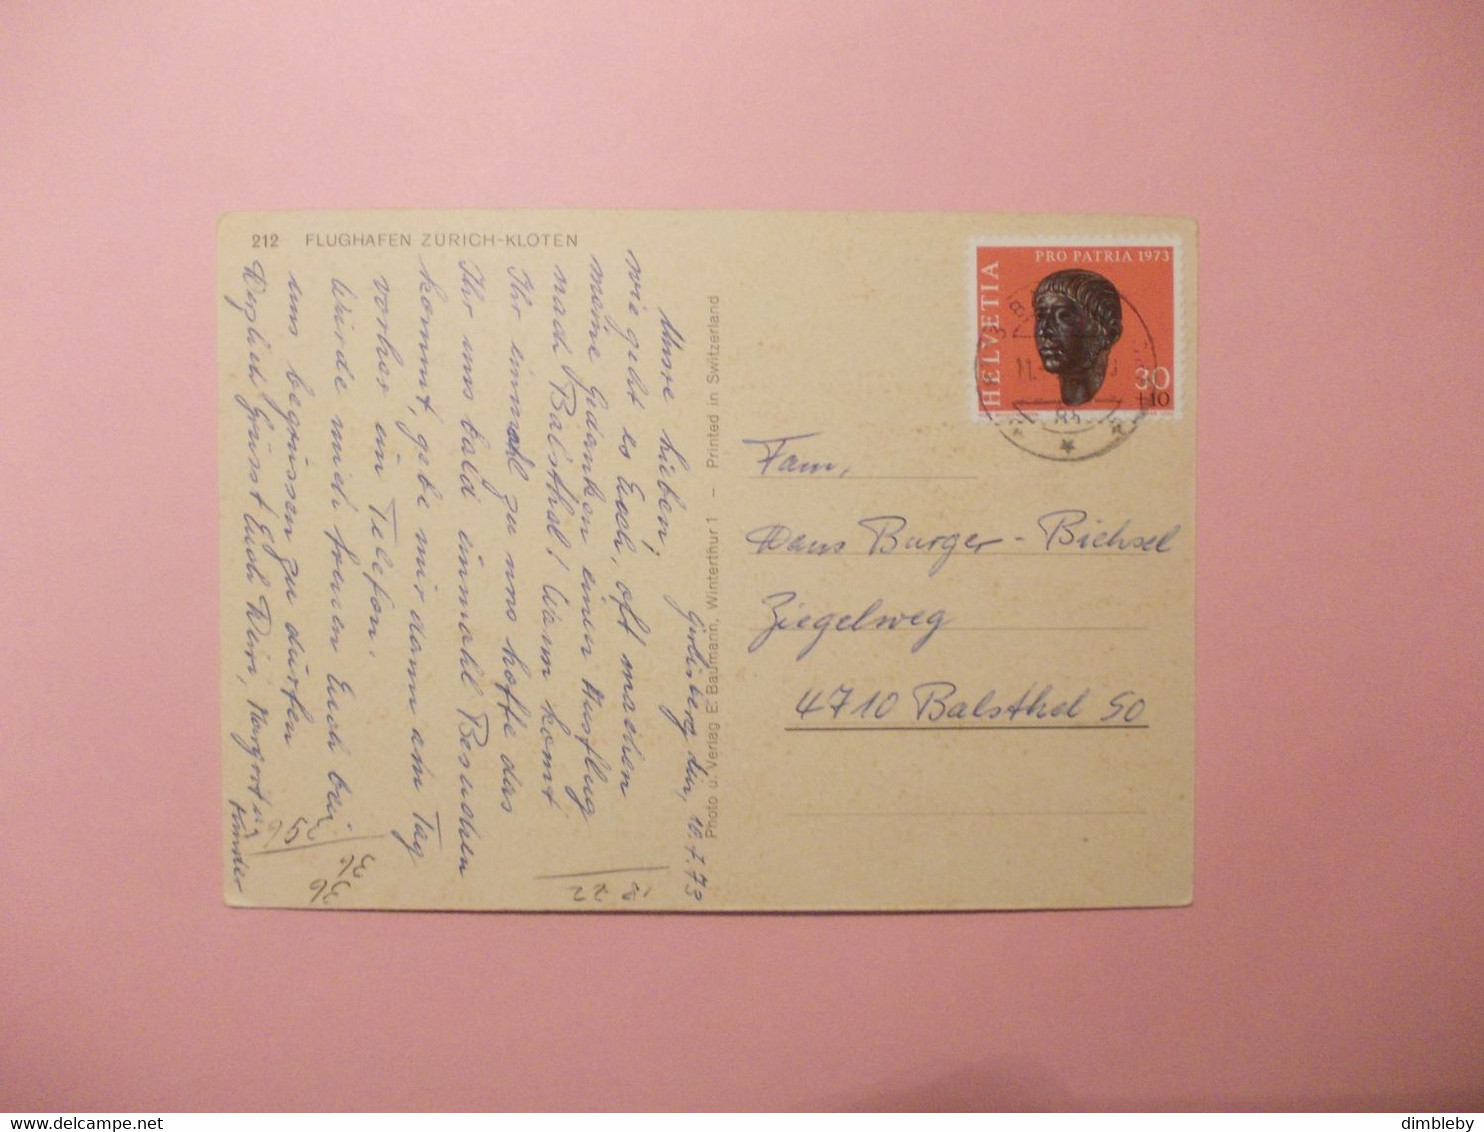 212 FLUGHAFEN ZÜRICH-KLOTEN
den, 10.7.73
Unsre Lieben,
wie geht es Euch, oft machen
meine Gedanken einen Ausflug
nach Balsthal! Wann komt
Ihr einmahl zu uns hoffe das
Ihr uns bald einmahl Besuchen
kommt, gebe mir dann ein Tag
vorher ein Telefon.
Würde mich freuen Euch bei
uns begrüssen zu dürfen
Herzlich Grüsst Euch
Kinder
18 22
36
36
356
Photo u. Verlag E. Baumann, Winterthur 1 – Printed in Switzerland
HELVETIA
PRO PATRIA 1973
30
+10
11.
Fam.
Hans Burger-Bichsel
Ziegelweg
4710 Balsthal SO
delcampe.net
dimbleby